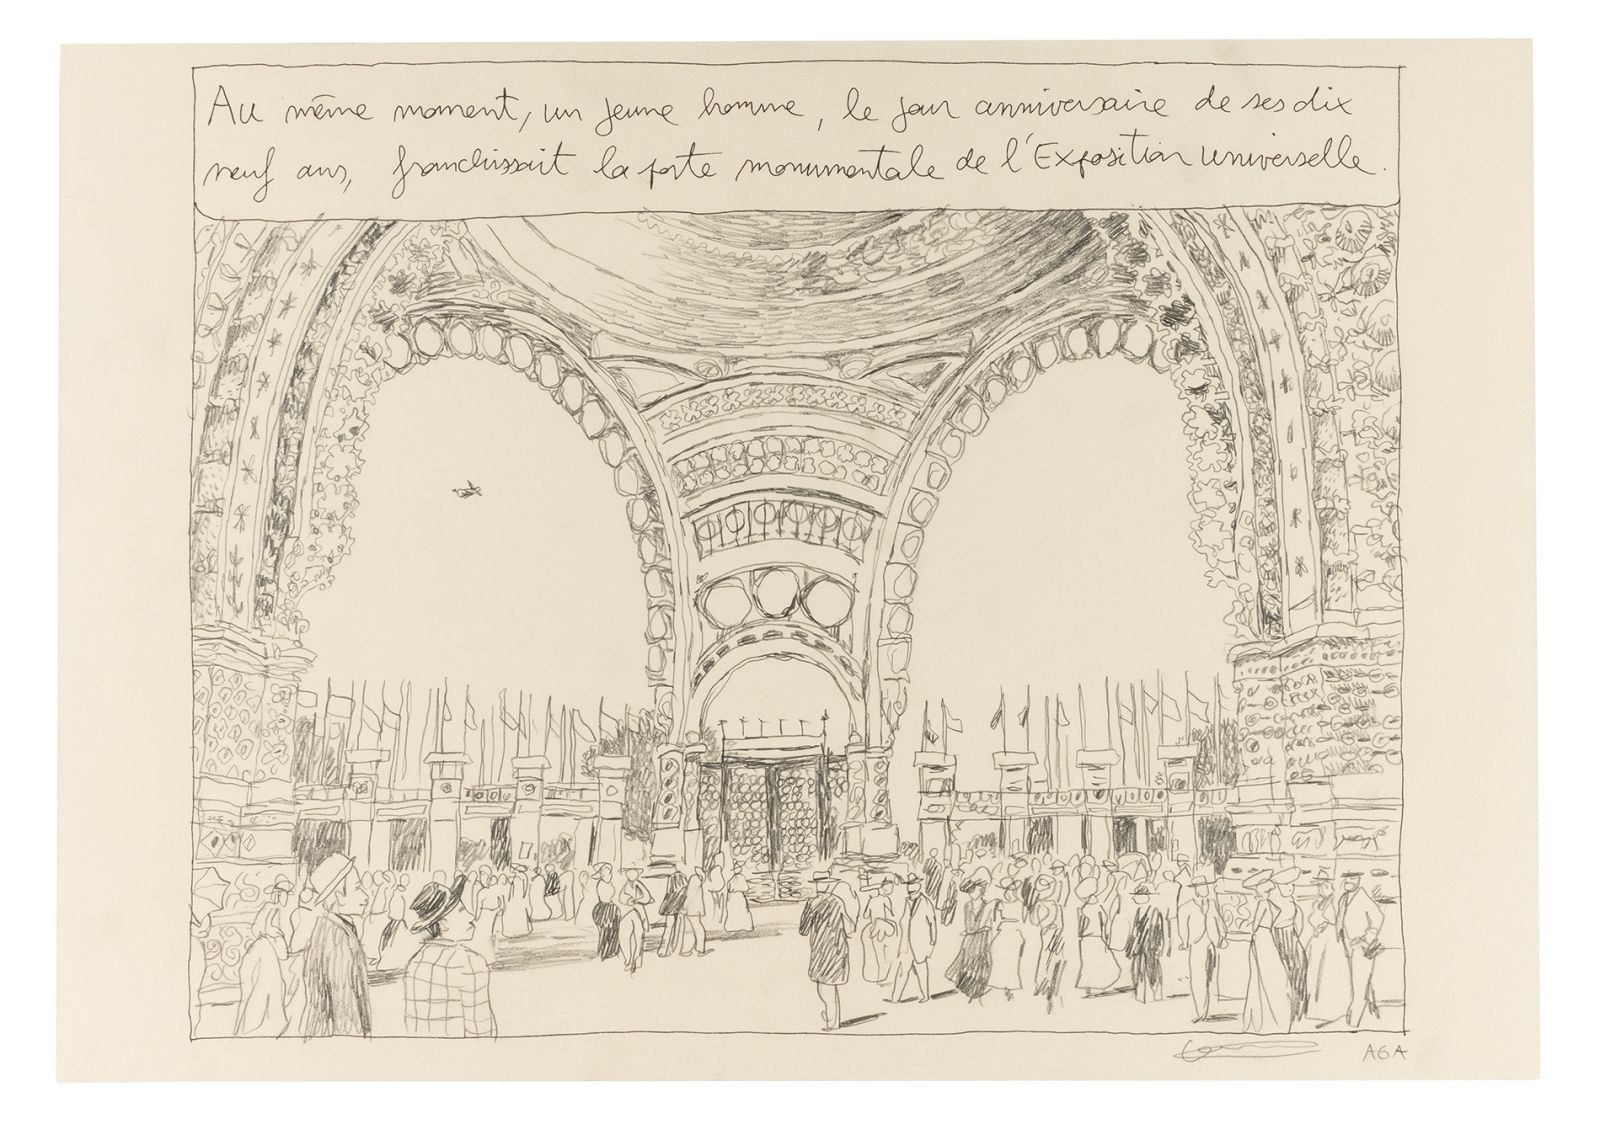 Au même moment, un jeune homme, le jour anniversaire de ses dix
neuf ans, franchissait la porte monumentale de l'Exposition Universelle.
AGA